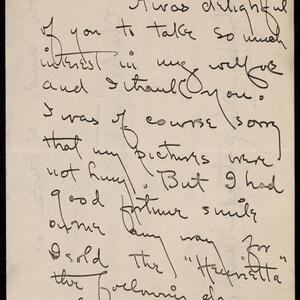 It was delightful
of you to take so much
interest in my welfare
and I thank you.
I was of course sorry
that my pictures were
not hung. But I had
good fortune smile
on me any way for
I sold the "Henrietta"
the following